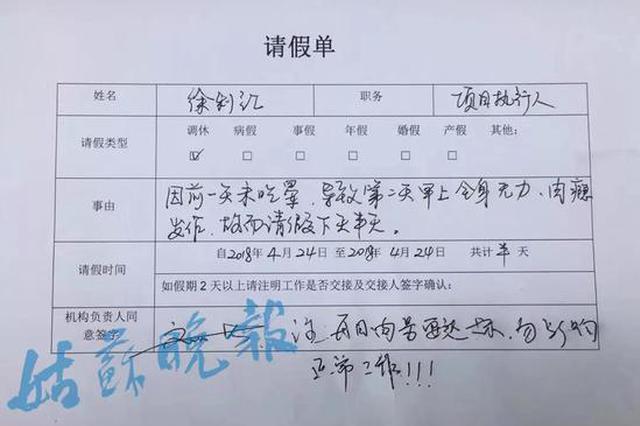 请假单
姓名 徐利江 职务 项目执行人
请假类型 调休 病假 事假 年假 婚假 产假 其他:
☑ □ □ □ □ □
事由 因前一天未吃荤,导致第二天早上全身无力、肉瘾
发作,故而请假下午半天。
请假时间 自2018年4月24日 至2018年4月24日 共计半天
如假期2天以上请注明工作是否交接及交接人签字确认:
机构负责人同
意签字 注: 每日肉量要达标,勿影响
正常工作!!!
姑蘇晚報